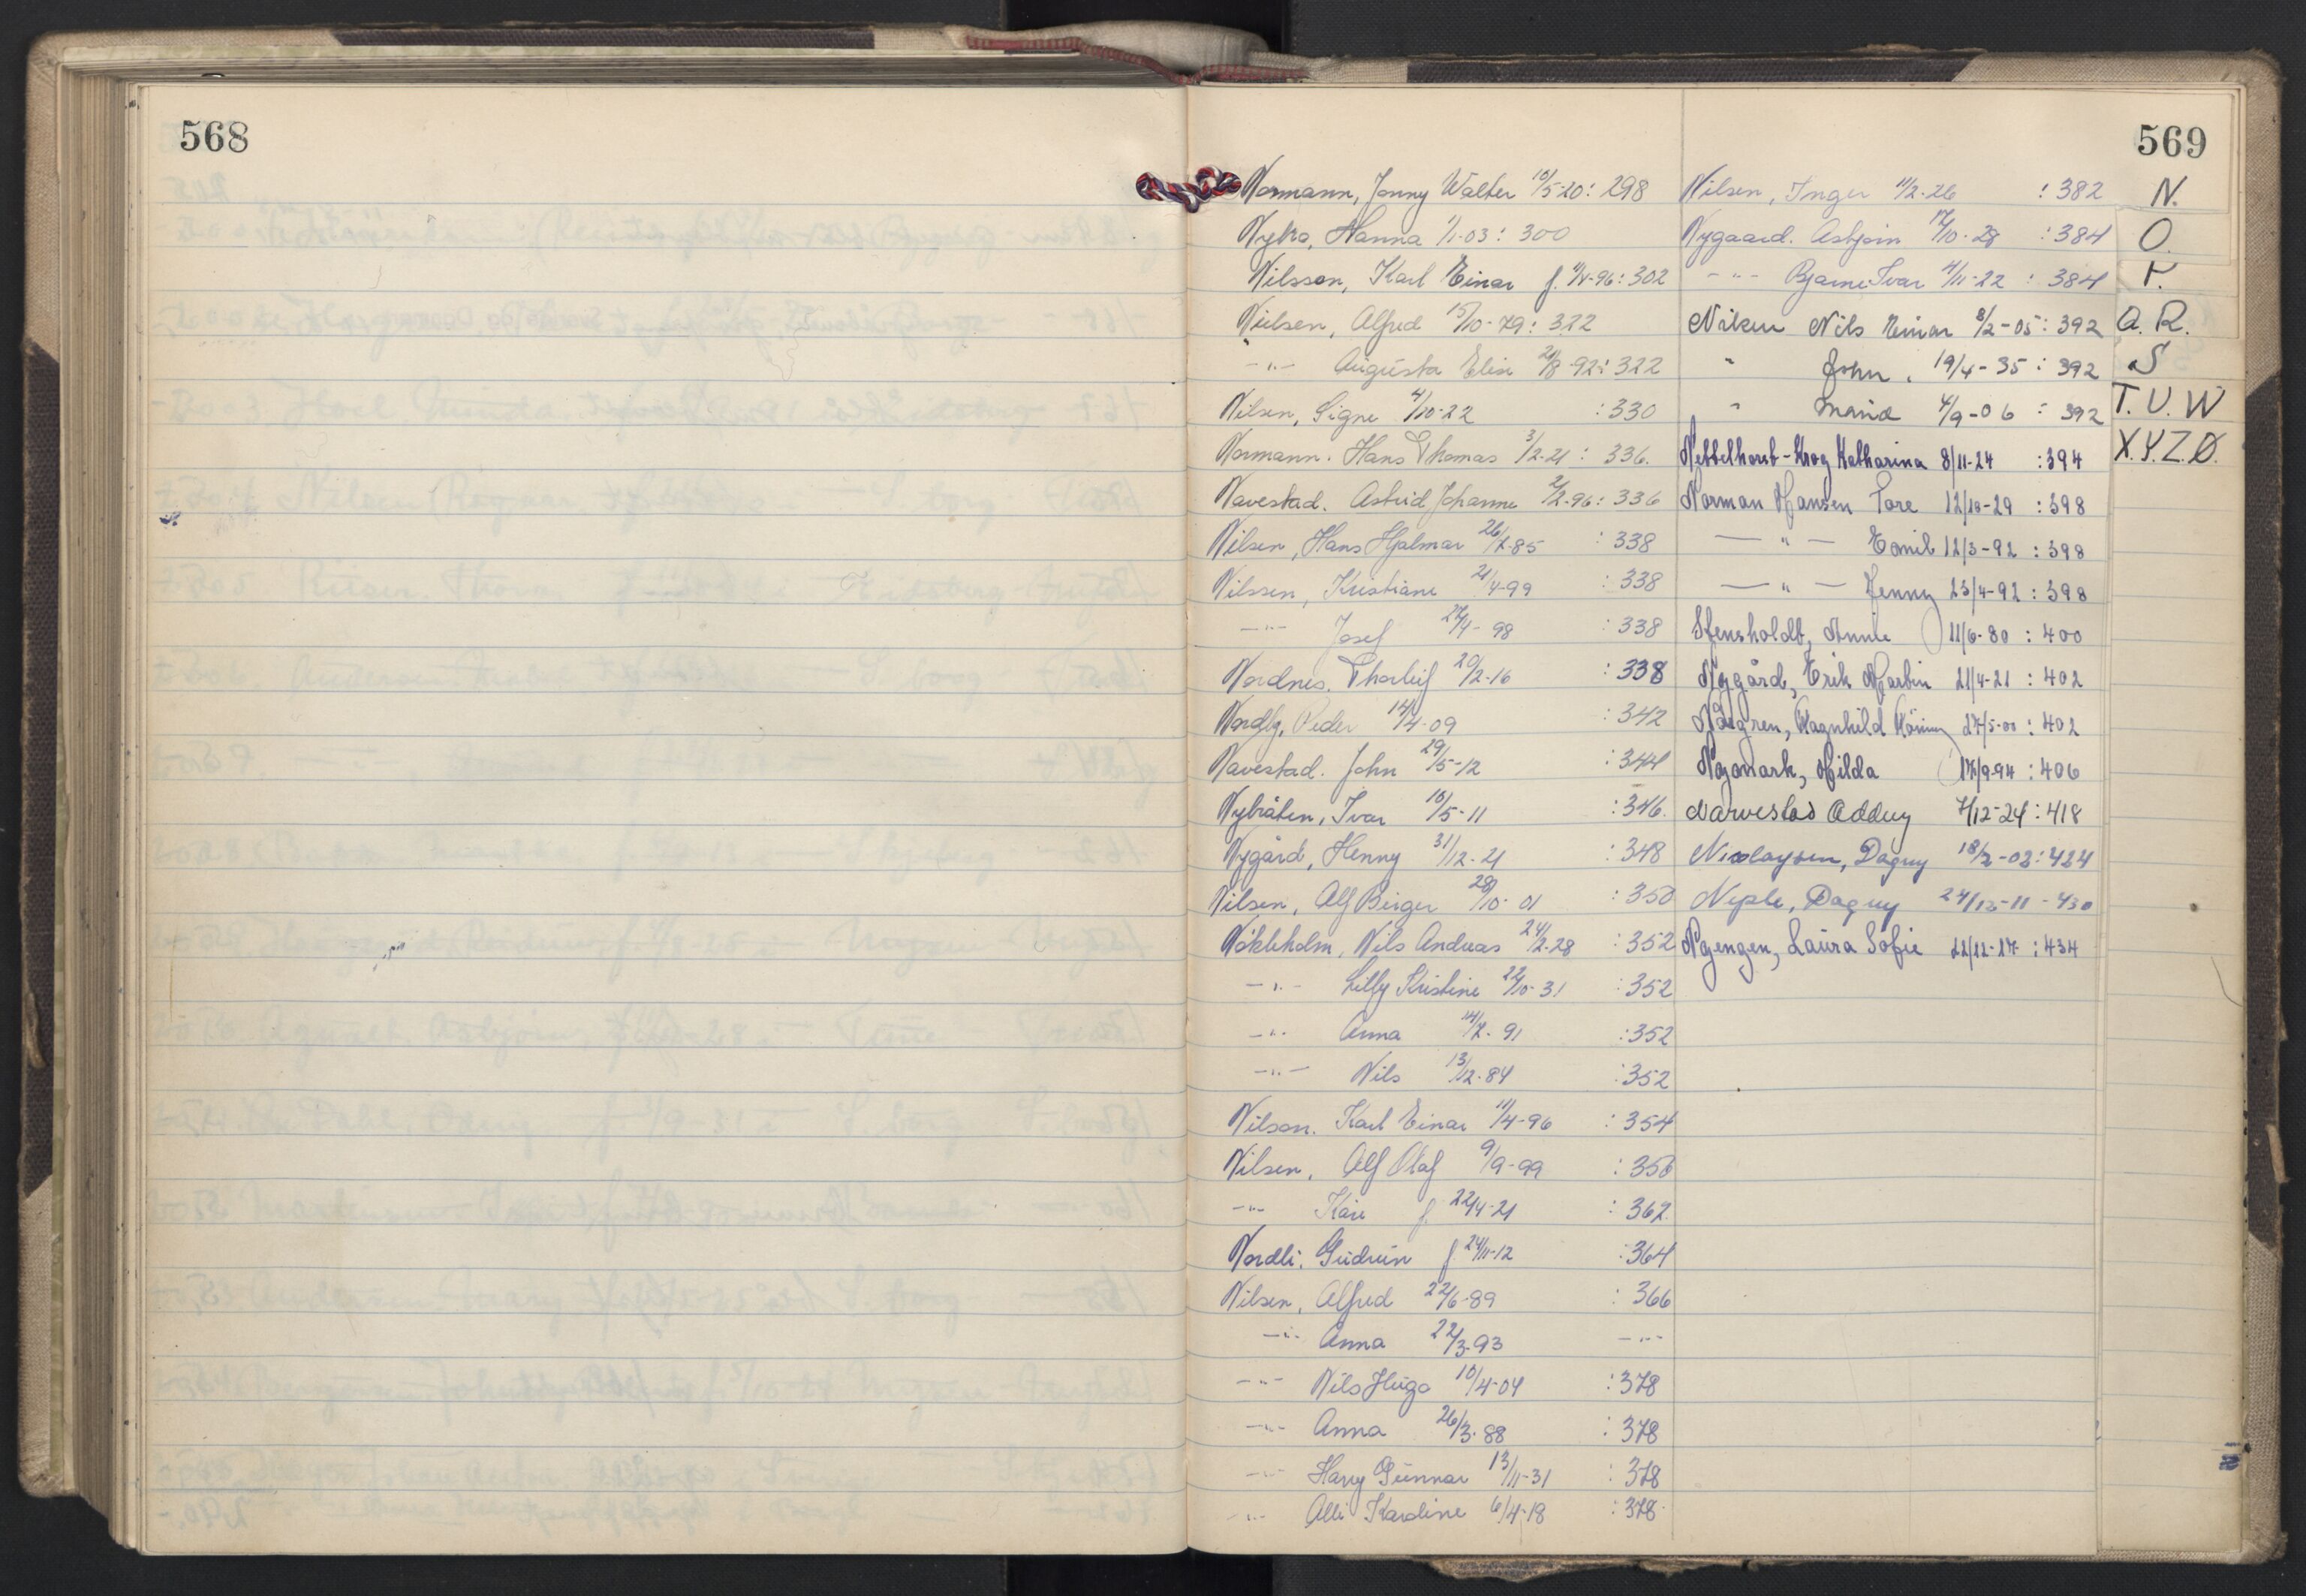 568
569
Normann, Jonny Walter 10/5-20: 298
Nybro, Hanna 1/1-03: 300
Nilsson, Karl Einar f. 11/4-96: 302
Nielsen, Alfred 15/10-79: 322
-"- Augusta Elise 21/8-92: 322
Nilsen, Signe 4/10-22 : 330
Normann. Hans Thomas 3/2-21: 336.
Navestad. Astrid Johanne 2/2-96: 336
Nilsen, Hans Hjalmar 26/7-85 : 338
Nilssen, Kristiane 21/4-99 : 338
-"- Josef 27/4-98 : 338
Nordnes. Thorleif 20/2-16 : 338
Nordly, Peder 14/4-09 : 342
Navestad. John 29/5-12 : 344
Nybråten, Ivar 10/5-11 : 346.
Nygård, Henny 31/12-21 : 348
Nilsen, Alf Birger 28/10-01 : 350
Nökleholm, Nils Andreas 24/2-28 : 352
-"- Lilly Kristine 22/10-31 : 352
-"- Anna 14/7-91 : 352
-"- Nils 13/12-84 : 352
Nilson. Karl Einar 11/4-96 : 354
Nilsen, Alf Olaf 9/9-99 : 356
-"- Kåre f. 22/4-21 : 362.
Nordli. Gudrun f 24/11-12 : 364
Nilsen, Alfred 22/6-89 : 366
-"- Anna 22/3-93 -"-
-"- Nils Hugo 10/4-04 : 378
-"- Anna 26/3-88 : 378
-"- Harry Gunnar 13/11-31 : 378
-"- Alli Karoline 6/4-18 : 378
Nilsen, Inger 11/2-26 : 382
Nygaard. Asbjørn 17/10-28 : 384
-"- Bjarne Ivar 4/11-22 : 384
Nilsen Nils Einar 8/2-05: 392
" John. 19/4-35: 392
" 4/9-06: 392
Nettelhorst-Krog Katharina 8/11-24 : 394
Norman Hansen Tore 12/10-29 : 398
-"- Emil 12/3-92 : 398
-"- Jenny 23/4-92 : 398
11/6-80 : 400
Nygård, Erik Martin 21/4-21 : 402
Norgren, Ragnhild 27/5-00 : 402
Nymark, Hilda 17/9-94 : 406
Narvestad Oddny 7/12-24: 418
Nicolaysen, Dagny 18/2-02: 424
Neple, Dagny 24/12-11-430
Nyengen, Laura Sofie 22/12-27: 434
N.
O.
P.
Q. R.
S
T. U. W
X.Y.Z.Ø.